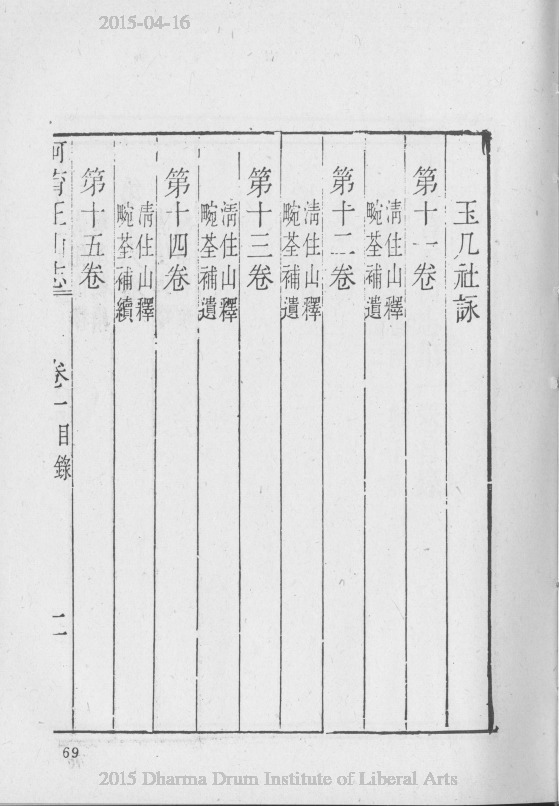 2015-04-16
玉几社詠
第十一卷
清住山釋
畹荃補遺
第十二卷
清住山釋
畹荃補遺
第十三卷
清住山釋
畹荃補遺
第十四卷
清住山釋
畹荃補續
第十五卷
阿育王山志 卷一目錄 二
69
2015 Dharma Drum Institute of Liberal Arts